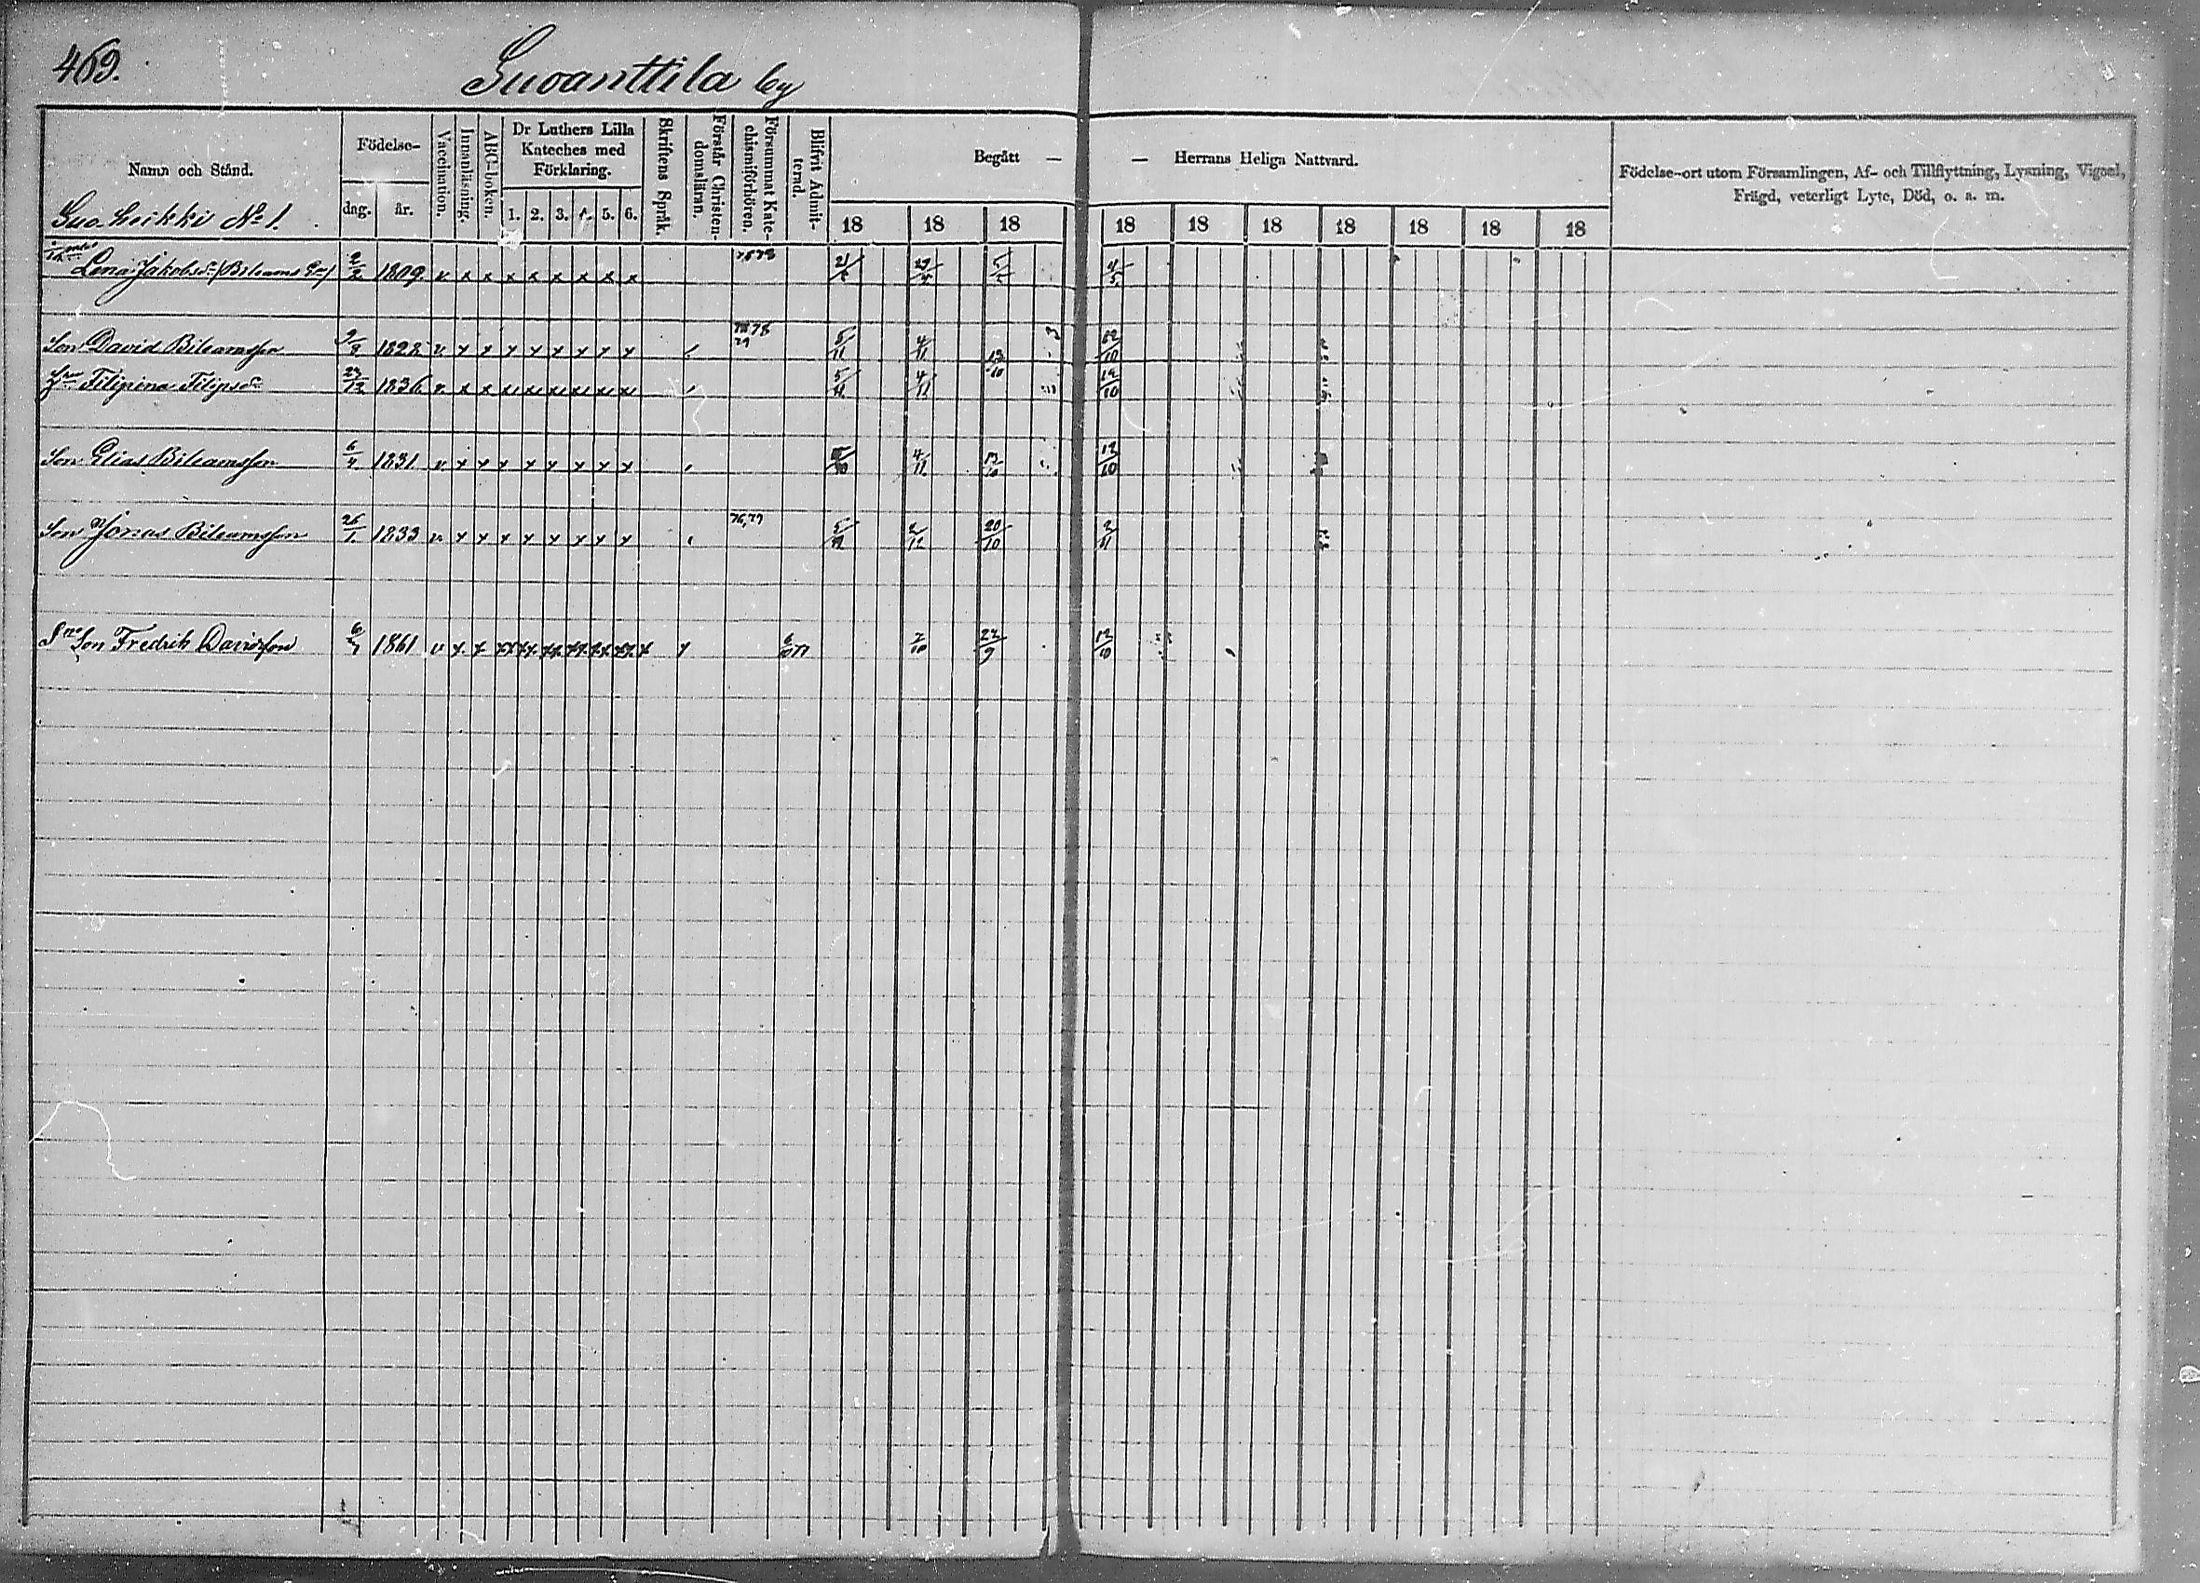 469.
Suoanttila by
Namn och Stånd.
Födelse-
dag. år.
Vaccination.
Innanläsning.
ABC-boken.
Dr Luthers Lilla Kateches med Förklaring.
1. 2. 3. 4. 5. 6.
Skriftens Språk.
Förstår Christen-domsläran.
Försummat Kate-chismiförhören.
Blifvit Admit-terad.
Begått — — Herrans Heliga Nattvard.
18 18 18 18 18 18 18 18 18 18
Födelse-ort utom Församlingen, Af- och Tillflyttning, Lysning, Vigsel,
Frägd, veterligt Lyte, Död, o. a. m.
Suo-Heikki No 1.
Lena Jakobsdr 2/2 1809. v x x x x x x x x
Son David Bileamsson 1828 v x x x x x x x x 5/11 4/11 13/10
Filipina Filipsdr 23/12 1836 v x x x x x x x x 5/11 4/11 12/10
Son Elias Bileamsson 6/4 1831 v x x x x x x x x 4/11 13/10 12/10
Son Jonas Bileamsson 26/1. 1833 v x x x x x x x x 76,79 2/12 20/10 2/11
Son Fredrik Davidsson 1861 v x x 7/10 22/9 12/10